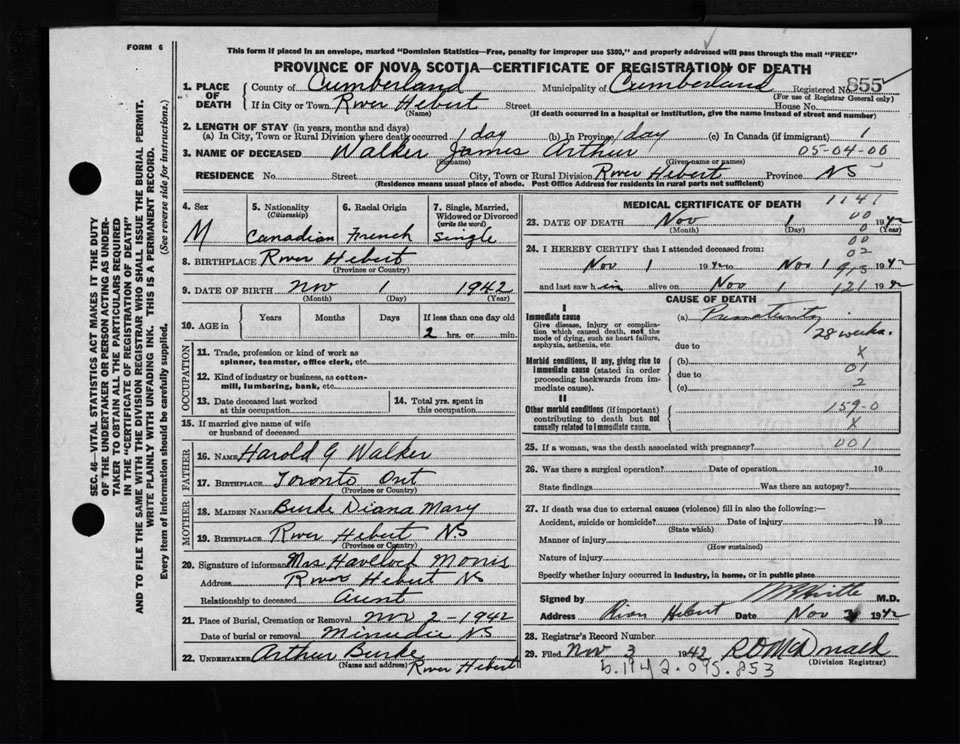 FORM 6
This form if placed in an envelope, marked "Dominion Statistics—Free, penalty for improper use $300," and properly addressed will pass through the mail "FREE"
PROVINCE OF NOVA SCOTIA—CERTIFICATE OF REGISTRATION OF DEATH
1. PLACE OF DEATH County of Cumberland Municipality of Cumberland Registered No. 855
(For use of Registrar General only)
If in City or Town River Hebert Street House No.
(Name) (If death occurred in a hospital or institution, give the name instead of street and number)
2. LENGTH OF STAY (in years, months and days)
(a) In City, Town or Rural Division where death occurred 1 day (b) In Province 1 day (c) In Canada (if immigrant) 1
3. NAME OF DECEASED Walker James Arthur 05-04-00
(Surname) (Given name or names)
RESIDENCE No. Street City, Town or Rural Division River Hebert Province NS
(Residence means usual place of abode. Post Office Address for residents in rural parts not sufficient)
4. Sex M
5. Nationality (Citizenship) Canadian
6. Racial Origin French
7. Single, Married, Widowed or Divorced (write the word) Single
8. BIRTHPLACE River Hebert
(Province or Country)
9. DATE OF BIRTH Nov 1 1942
(Month) (Day) (Year)
10. AGE in Years Months Days If less than one day old
2 hrs. or min.
OCCUPATION
11. Trade, profession or kind of work as spinner, teamster, office clerk, etc.
12. Kind of industry or business, as cotton-mill, lumbering, bank, etc.
13. Date deceased last worked at this occupation
14. Total yrs. spent in this occupation
15. If married give name of wife or husband of deceased
FATHER
16. NAME Harold G Walker
17. BIRTHPLACE Toronto Ont
(Province or Country)
MOTHER
18. MAIDEN NAME Burke Diana Mary
19. BIRTHPLACE River Hebert NS
(Province or Country)
20. Signature of informant Mrs Havelock Morris
Address River Hebert NS
Relationship to deceased Aunt
21. Place of Burial, Cremation or Removal Nov 2 - 1942
Date of burial or removal Minudie NS
22. UNDERTAKER Arthur Burke River Hebert
(Name and address)
MEDICAL CERTIFICATE OF DEATH 1141
00
23. DATE OF DEATH Nov 1 1942
(Month) (Day) 0 (Year)
00
24. I HEREBY CERTIFY that I attended deceased from:
02
Nov 1 1942 to Nov 1 1942
913
and last saw him alive on Nov 1 1942
121
CAUSE OF DEATH
I
Immediate cause (a) Prematurity
Give disease, injury or complication which caused death, not the mode of dying, such as heart failure, asphyxia, asthenia, etc
28 weeks.
due to
X
Morbid conditions, if any, giving rise to immediate cause (stated in order proceeding backwards from immediate cause).
(b)
01
due to
2
(c)
II
Other morbid conditions (if important) contributing to death but not causally related to immediate cause.
159-0
X
25. If a woman, was the death associated with pregnancy? 001
26. Was there a surgical operation? Date of operation 19
State findings Was there an autopsy?
27. If death was due to external causes (violence) fill in also the following:—
Accident, suicide or homicide? Date of injury 19
(State which)
Manner of injury
(How sustained)
Nature of injury
Specify whether injury occurred in industry, in home, or in public place
Signed by M.D.
Address River Hebert Date Nov 3 1942
28. Registrar's Record Number
29. Filed Nov 3 1942 R D McDonald
(Division Registrar)
5.1942.095.853
SEC. 46—VITAL STATISTICS ACT MAKES IT THE DUTY
OF THE UNDERTAKER OR PERSON ACTING AS UNDER-
TAKER TO OBTAIN ALL THE PARTICULARS REQUIRED
IN THE "CERTIFICATE OF REGISTRATION OF DEATH"
AND TO FILE THE SAME WITH THE DIVISION REGISTRAR WHO SHALL ISSUE THE BURIAL PERMIT.
WRITE PLAINLY WITH UNFADING INK. THIS IS A PERMANENT RECORD.
Every item of information should be carefully supplied. (See reverse side for instructions.)